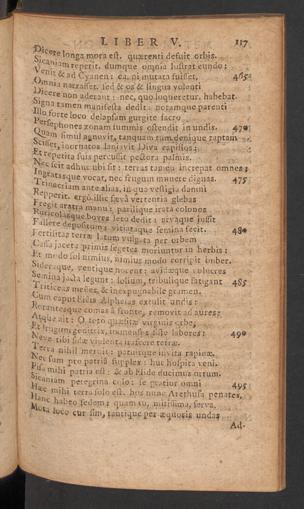 LIBER V. 117
Dicere longa mora est. quærenti defuit orbis.
Sicaniam reperit. dumque omnia lustrat eundo:
Venit & ad Cyanen: ea, ni mutata fuisset, 465
Omnia narrasset. sed & os & lingua volenti
Dicere non aderant: nec, quo loqueretur, habebat.
Signa tamen manifesta dedit: notamque parenti
Illo forte loco delapsam gurgite sacro
Persephones zonam summis ostendit in undis. 470
Quam simul agnovit, tanquam tum denique raptam
Scisset, inornatos laniavit Diva capillos:
Et repetita suis percussit pectora palmis.
Nec scit adhuc ubi sit: terras tamen increpat omnes;
Ingratasque vocat, nec frugum munere dignas. 475
Trinacriam ante alias, in qua vestigia damni
Repperit. ergo illic sæva vertentia glebas
Fregit aratra manu: parilique irata colonos
Ruricolasque boves leto dedit: arvaque jussit
Fallere depositum: vitiataque semina fecit. 480
Fertilitas terræ latum vulgata per orbem
Cassa jacet: primis segetes moriuntur in herbis:
Et modo sol nimius, nimius modo corripit imber.
Sideraque, ventique nocent: avidæque volucres
Semina jacta legunt: lolium, tribulique fatigant 485
Triticeas messes, & inexpugnabile gramen.
Cum caput Eleis Alpheias extulit undis:
Rorantesque comas a fronte, removit ad aures;
Atque ait: O toto quæsitæ virginis orbe,
Et frugum genitrix, immensos siste labores: 490
Neve tibi fidæ violenta irascere terræ.
Terra nihil meruit: patuitque invita rapinæ.
Nec sum pro patria supplex: huc hospita veni.
Pisa mihi patria est: & ab Elide ducimus ortum.
Sicaniam peregrina colo: se gratior omni 495
Hæc mihi terra solo est. hos nunc Arethusa penates,
Hanc habeo sedem: quam tu, mitissima, serva.
Mota loco cur sim, tantique per æquoris undas
Ad-